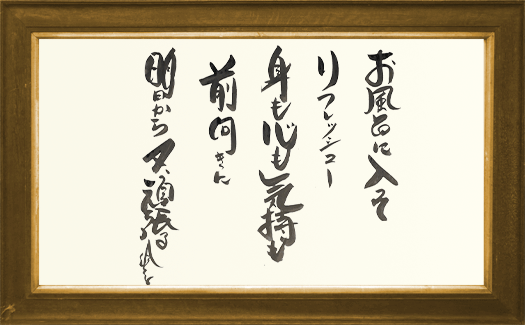 お風呂に入って
リフレッシュー
身も心も気持も
前向きに
明日から又頑張る